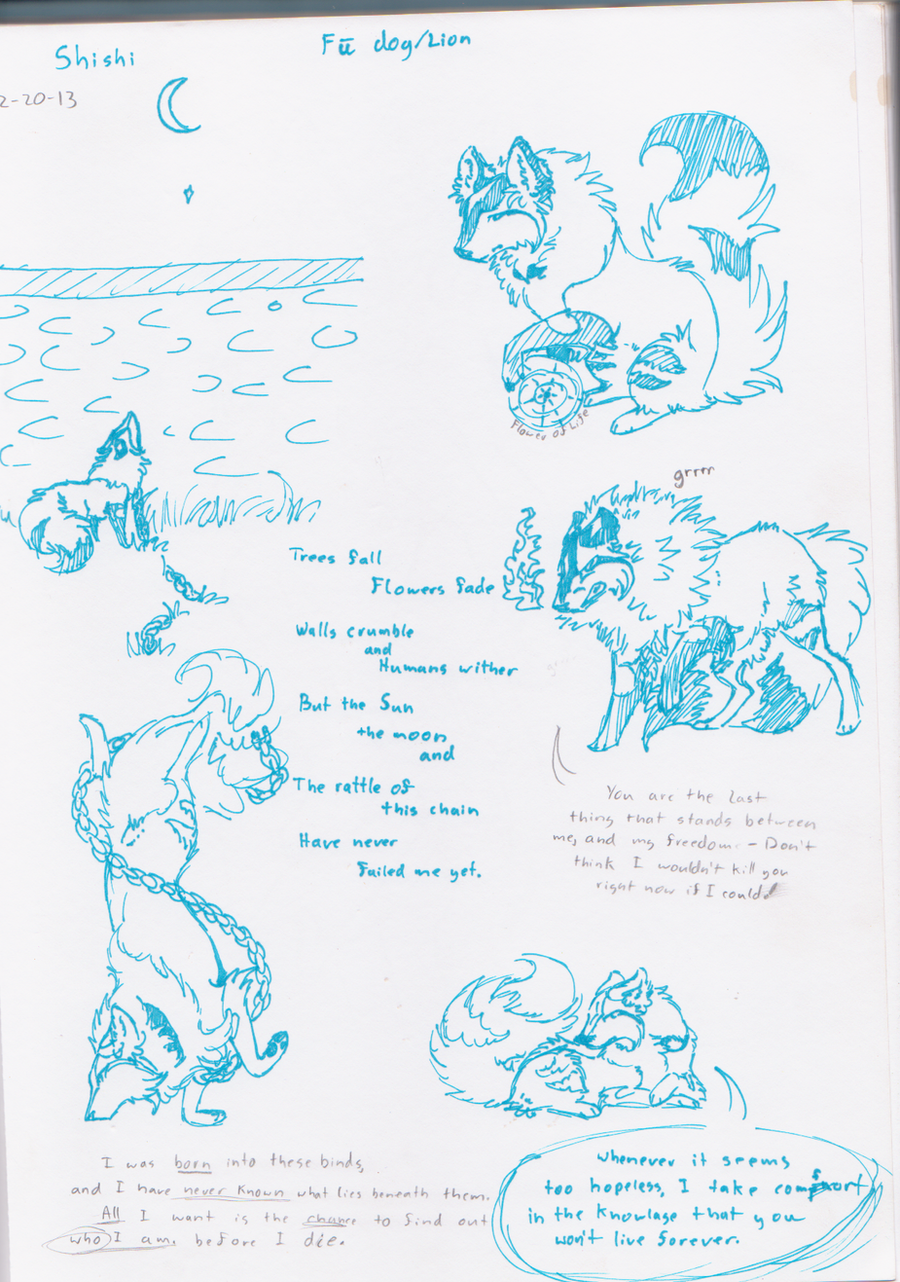 Shishi
Fū dog/Lion
2-20-13
Flower of Life
grrrr
Trees fall
Flowers fade
Walls crumble
and
Humans wither
But the Sun
the moon
and
The rattle of
this chain
Have never
failed me yet.
You are the last
thing that stands between
me, and my freedom. - Don't
think I wouldn't kill you
right now if I could!
I was born into these binds,
and I have never known what lies beneath them.
All I want is the chance to find out
who I am. before I die.
Whenever it seems
too hopeless, I take comfort
in the knowlage that you
won't live forever.